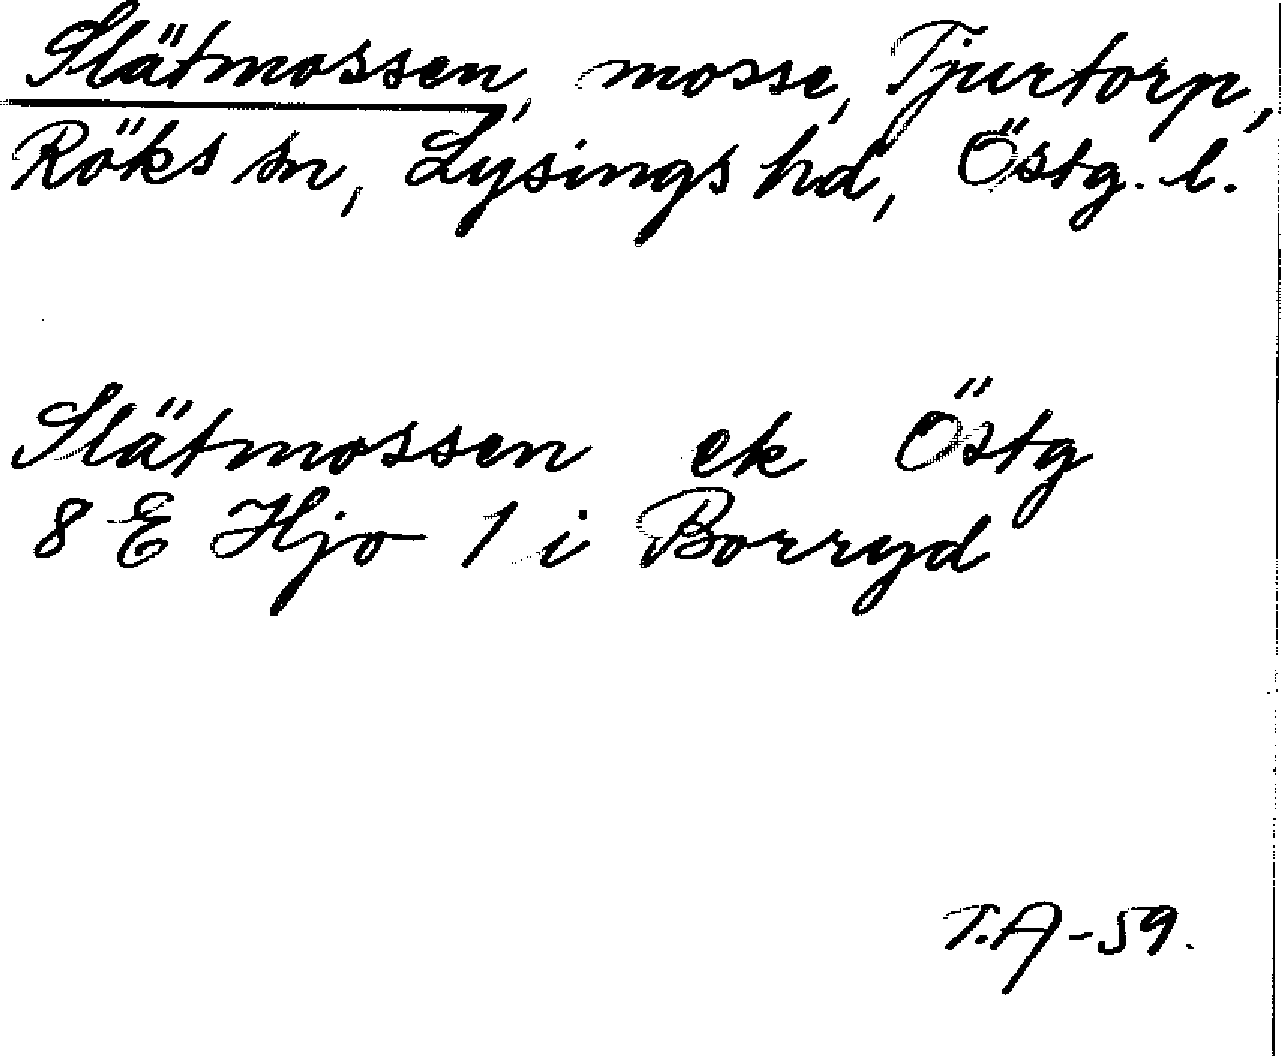 Slätmossen, mosse, Tjurtorp,
Röks sn, Lysings hd, Östg. l.
Slätmossen ek Östg
8 E Hjo 1 i Borryd
T.A-59.